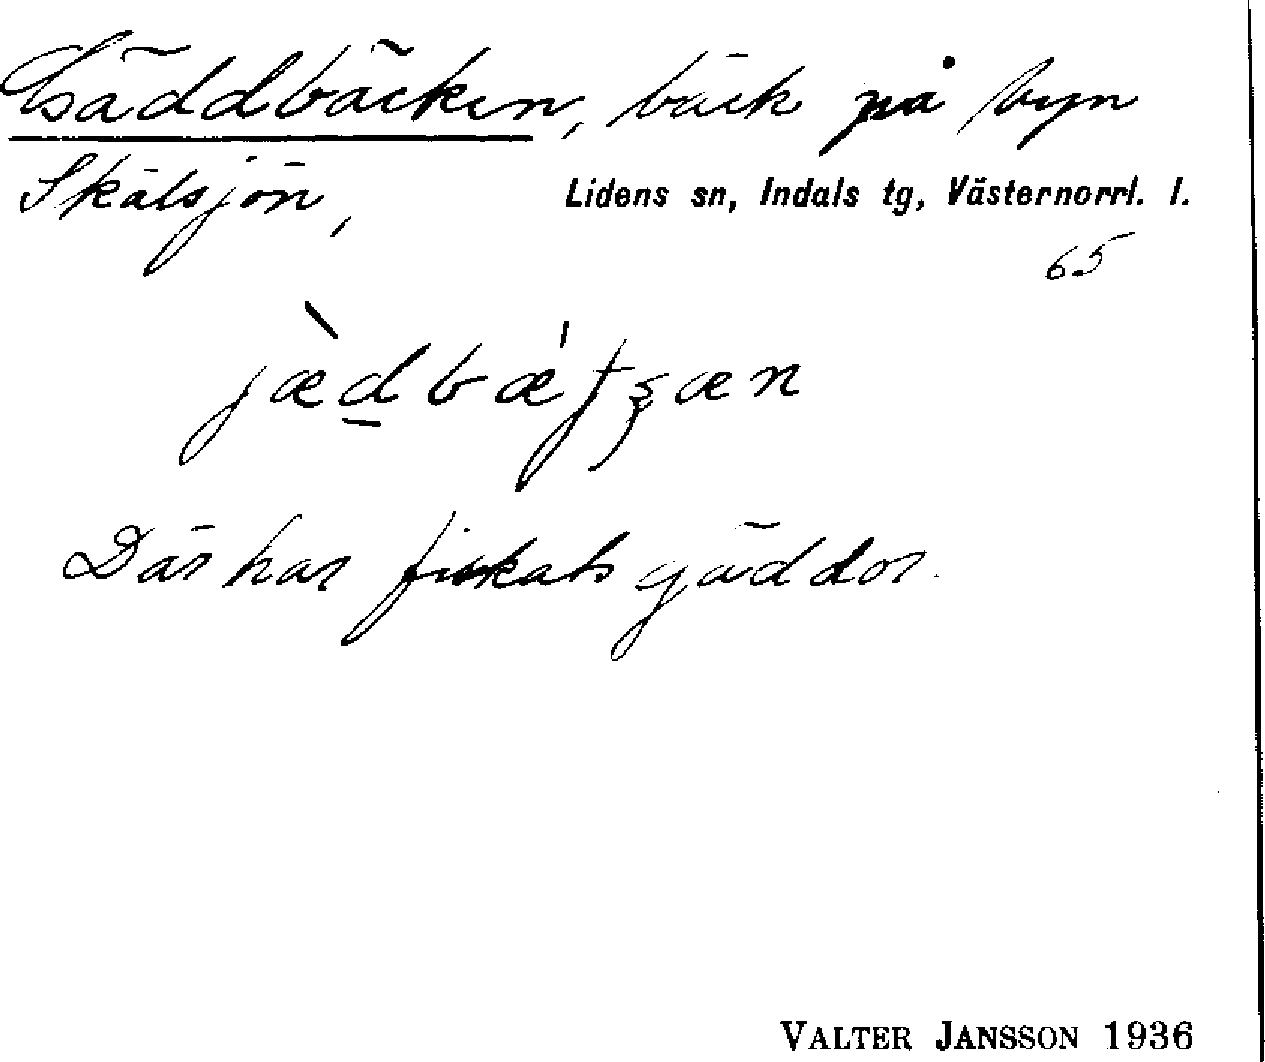 Gäddbäcken, bäck på byn
Skälsjön, Lidens sn, Indals tg, Västernorrl. l.
65
jæ̀d̲bæ'tʂæn
Där har fiskats gäddor.
VALTER JANSSON 1936